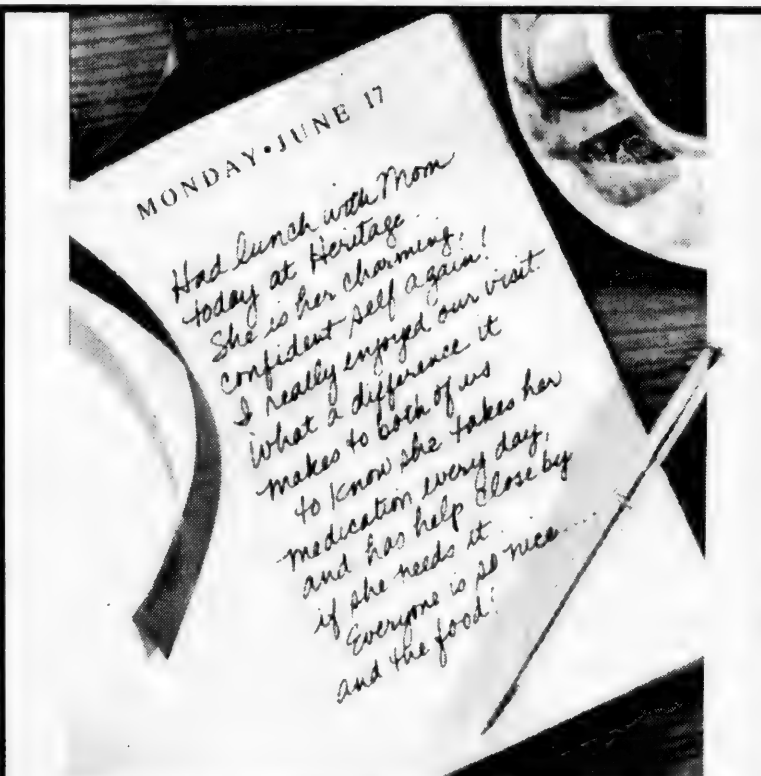 MONDAY•JUNE 17
Had lunch with Mom
today at Heritage.
She is her charming,
confident self again!
I really enjoyed our visit.
What a difference it
makes to both of us
to know she takes her
medication every day,
and has help close by
if she needs it.
Everyone is so nice....
and the food!